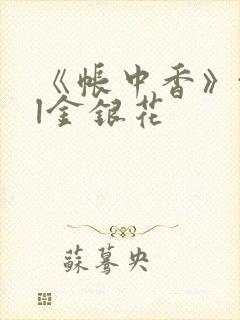 《帐中香》
l金银花
苏蓦央